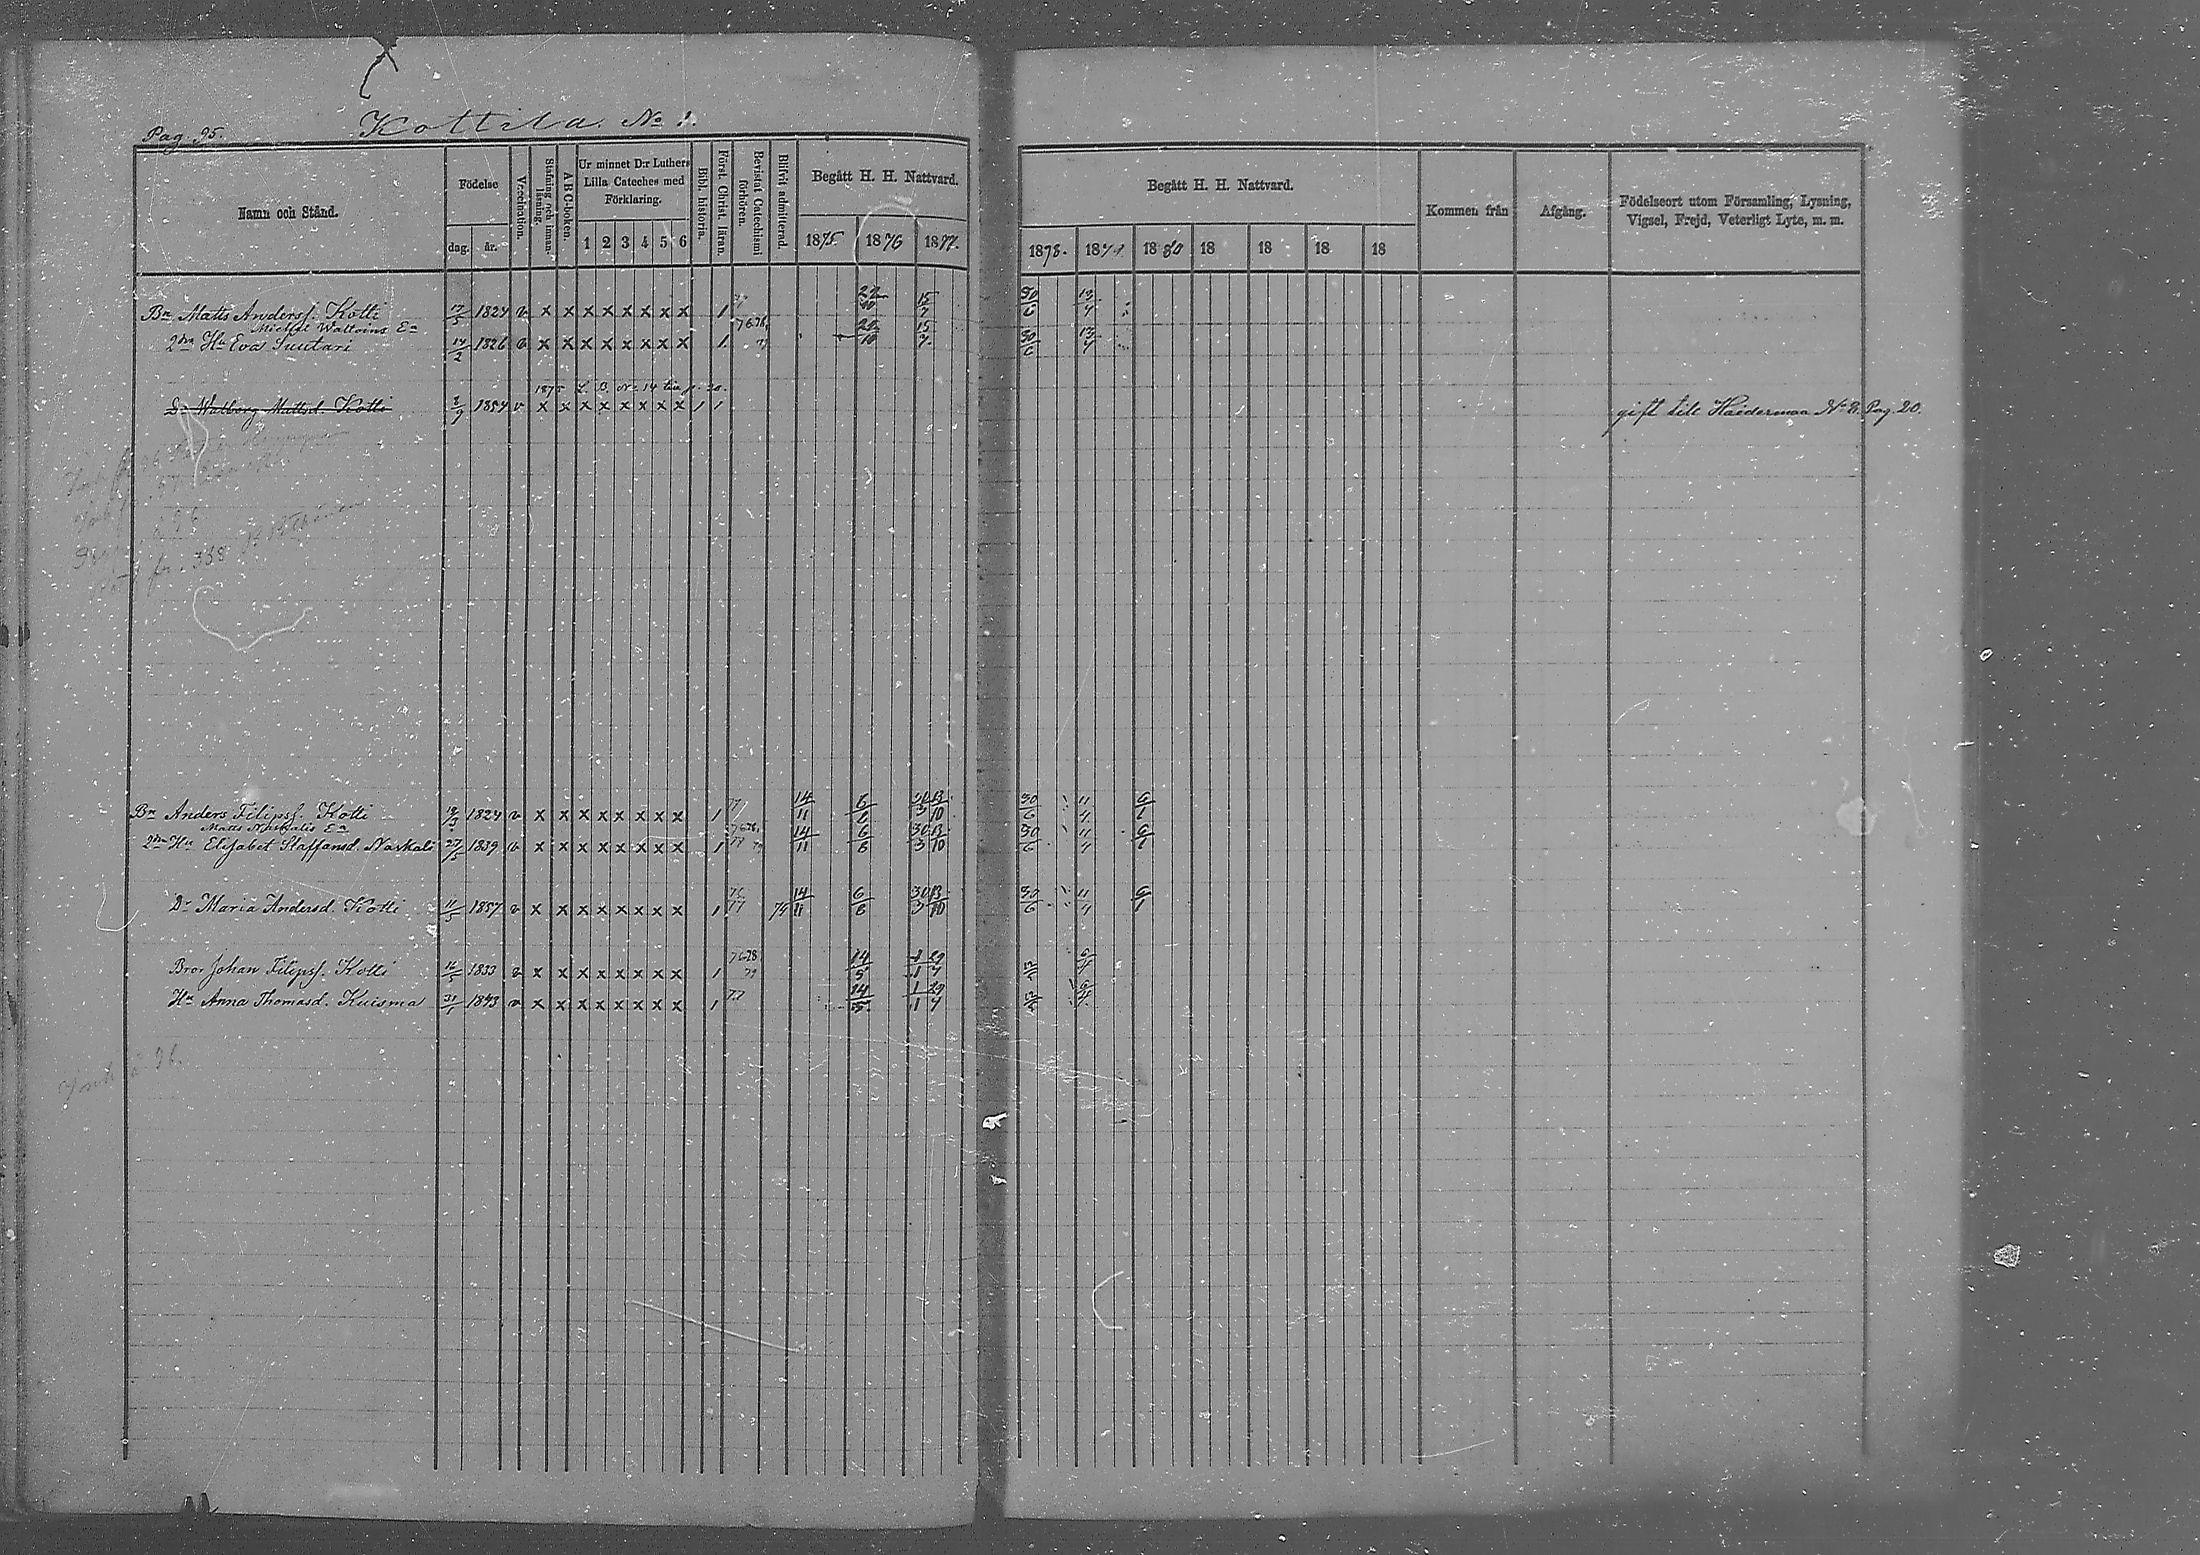 Pag. 95. Kottila. No 1.
Namn och Stånd. Födelse dag. år. Vaccination. Stafning och innanläsning. ABC-boken. Ur minnet D:r Luthers Lilla Cateches med Förklaring. 1 2 3 4 5 6 Bibl. historia. Först. Christ. läran. Bevistat Catechismi förhören. Blifvit admitterad. Begått H. H. Nattvard. 1875 1876 1877.
Begått H. H. Nattvard. 1878. 1879. 1880 18 18 18 18 Kommen från Afgång. Födelseort utom Församling, Lysning, Vigsel, Frejd, Veterligt Lyte, m. m.
Bn Matts Anderss. Kotti 1824 v x x x x x x x x 1 15/7 30/6
Michel Waltoins En
2dra Hu Eva Suutari 17/2 1826 v x x x x x x x x 1 76.78. 15/7 30/6
1875 L. B. No 14 till p. 20.
Dr Walborg Mattsd. Kotti 1854 v x x x x x x x x 1 1 gift till Haidermaa No 8. Pag. 20.
Bn Anders Filipss. Kotti 1824 v x x x x x x x x 1 77 14/11 6/6 30/3 13/10 30/6 11/4 6/1
Matts Naskalis En
2dra Hu Elisabet Staffansd. Naskali 27/5 1839 v x x x x x x x x 1 14/11 6/6 30/3 13/10 30/6 11/4 6/1
Dr Maria Andersd. Kotti 11/5 1857 v x x x x x x x x 1 76 77 74 14/11 6/6 30/3 13/10 30/6 11/4 6/1
Bror Johan Filipss. Kotti 16/5 1833 v x x x x x x x x 1 76 78 79 14/5 1/1 29/7
Hu Anna Thomasd. Kuisma 31/1 1843 v x x x x x x x x 1 77 14/5 1/1 29/7